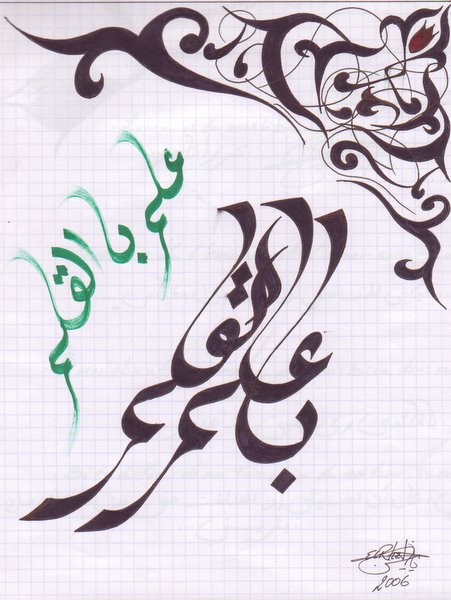 علم بالقلم
علم بالقلم
2006